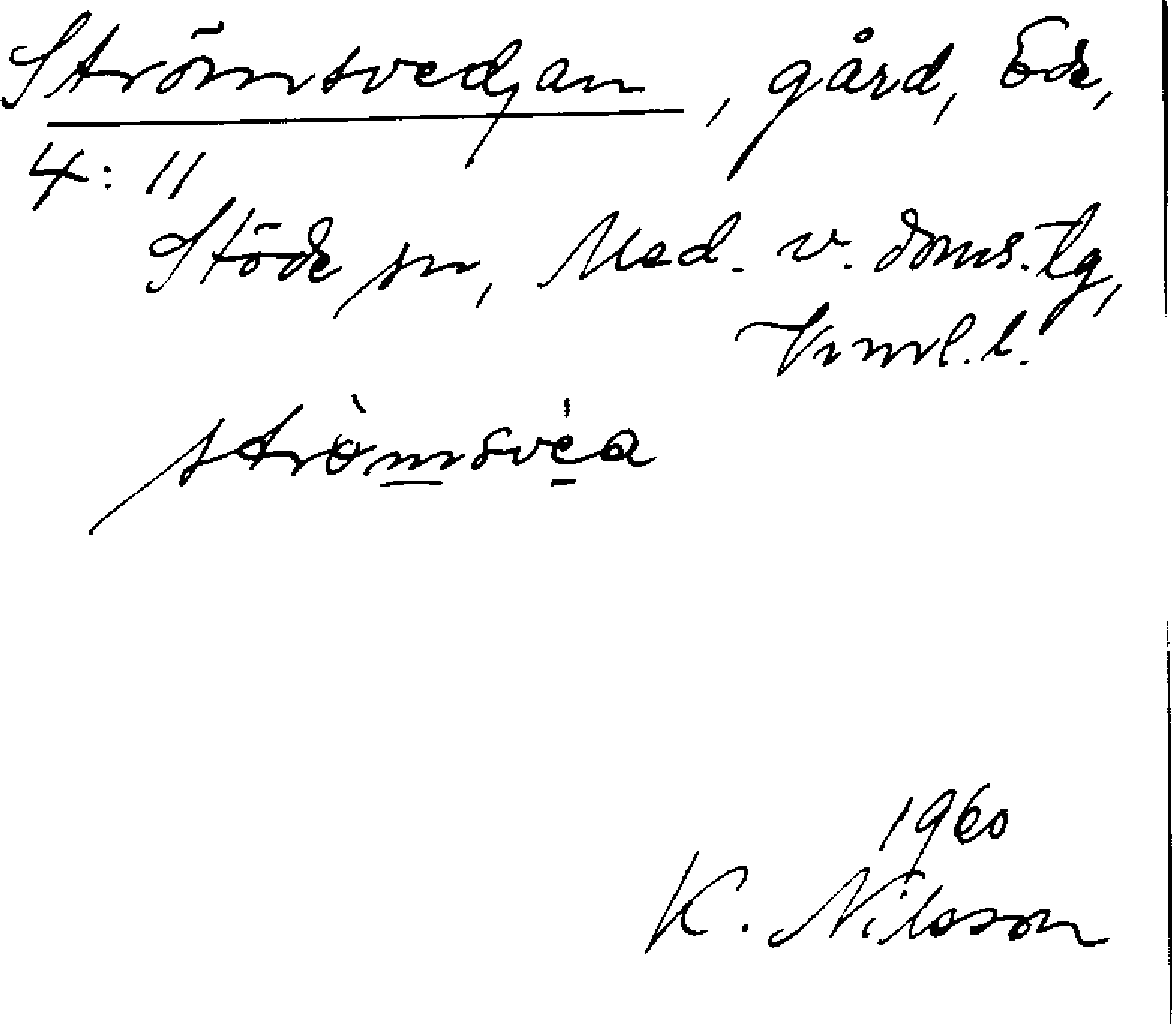 Strömsvedjan, gård, Ede,
4:11
Stöde sn, Med. v. doms. tg,
Vrnrl. l.
strömsvéa
1960
K. Nilsson